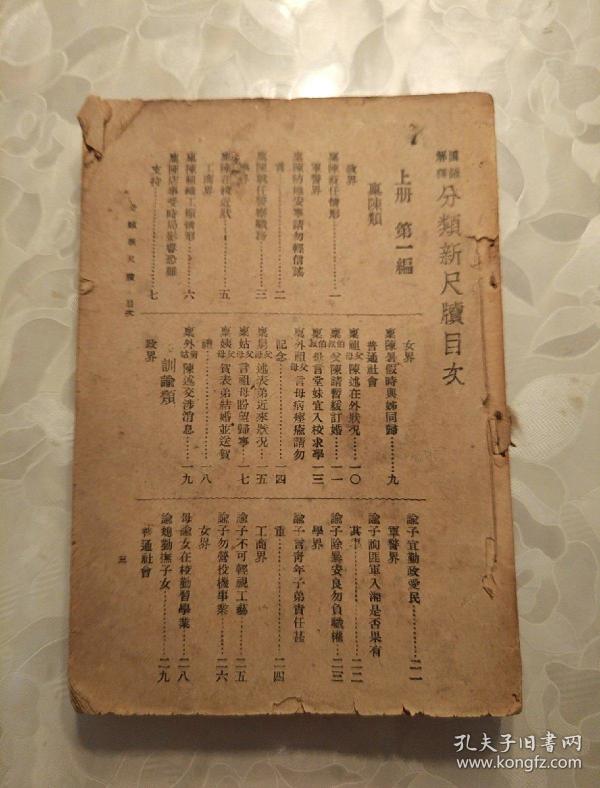 解釋
分類新尺牘目次
上册 第一編
稟陳類
政界
稟陳到任情形……一
軍警界
稟陳防地安寧請勿輕信謠
言……二
稟陳職任警察職務……三
學界
稟陳在校近狀……五
工商界
稟陳組織工廠情形……六
稟陳店事受時局影響恐難
支持……七
分類新尺牘 目次
女界
稟陳暑假時與姊同歸……九
普通社會
稟祖父母陳述在外狀況……一〇
稟伯叔父陳請暫緩訂婚……一一
稟伯叔母言堂妹宜入校求學一三
稟外祖父母言母病瘵瘧請勿
記念……一四
稟舅父母述表弟近來狀況…一五
稟姑父母言祖母盼望歸寧…一七
稟姨父母賀表弟結婚並送賀
禮……一八
稟外舅姑陳述交涉消息…一九
訓諭類
政界
諭子宜勤政愛民……二一
軍警界
諭子詢匪軍入湘是否果有
其事……二二
諭子除暴安良勿負職權…二三
學界
諭子言青年子弟責任甚
重……二四
工商界
諭子不可輕視工藝……二五
諭子勿營投機事業……二六
女界
母諭女在校勤習學業……二八
諭媳勤撫子女……二九
普通社會
三
孔夫子旧书网
www.kongfz.com